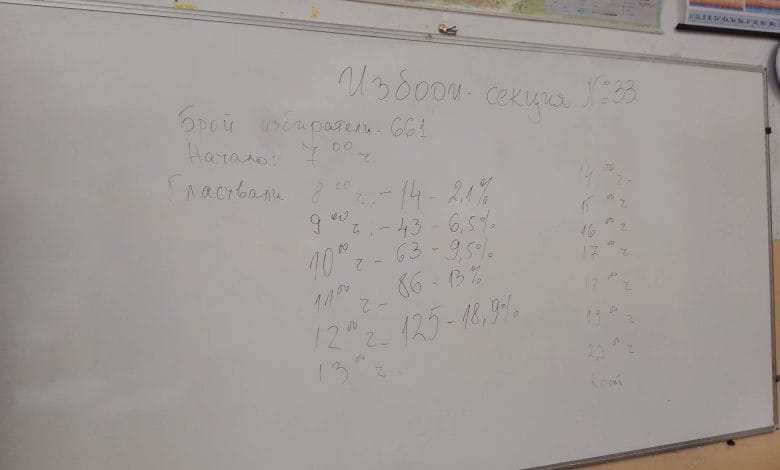 Избори - секция №33
Брой избиратели - 661
Начало: 7⁰⁰ ч.
Гласували 8⁰⁰ ч. - 14 - 2,1%
9⁰⁰ ч. - 43 - 6,5%
10⁰⁰ ч - 63 - 9,5%
11⁰⁰ ч - 86 - 13%
12⁰⁰ ч - 125 - 18,9%
13⁰⁰ ч -
14⁰⁰ ч -
15⁰⁰ ч
16⁰⁰ ч
17⁰⁰ ч
18⁰⁰ ч
19⁰⁰ ч
20⁰⁰ ч